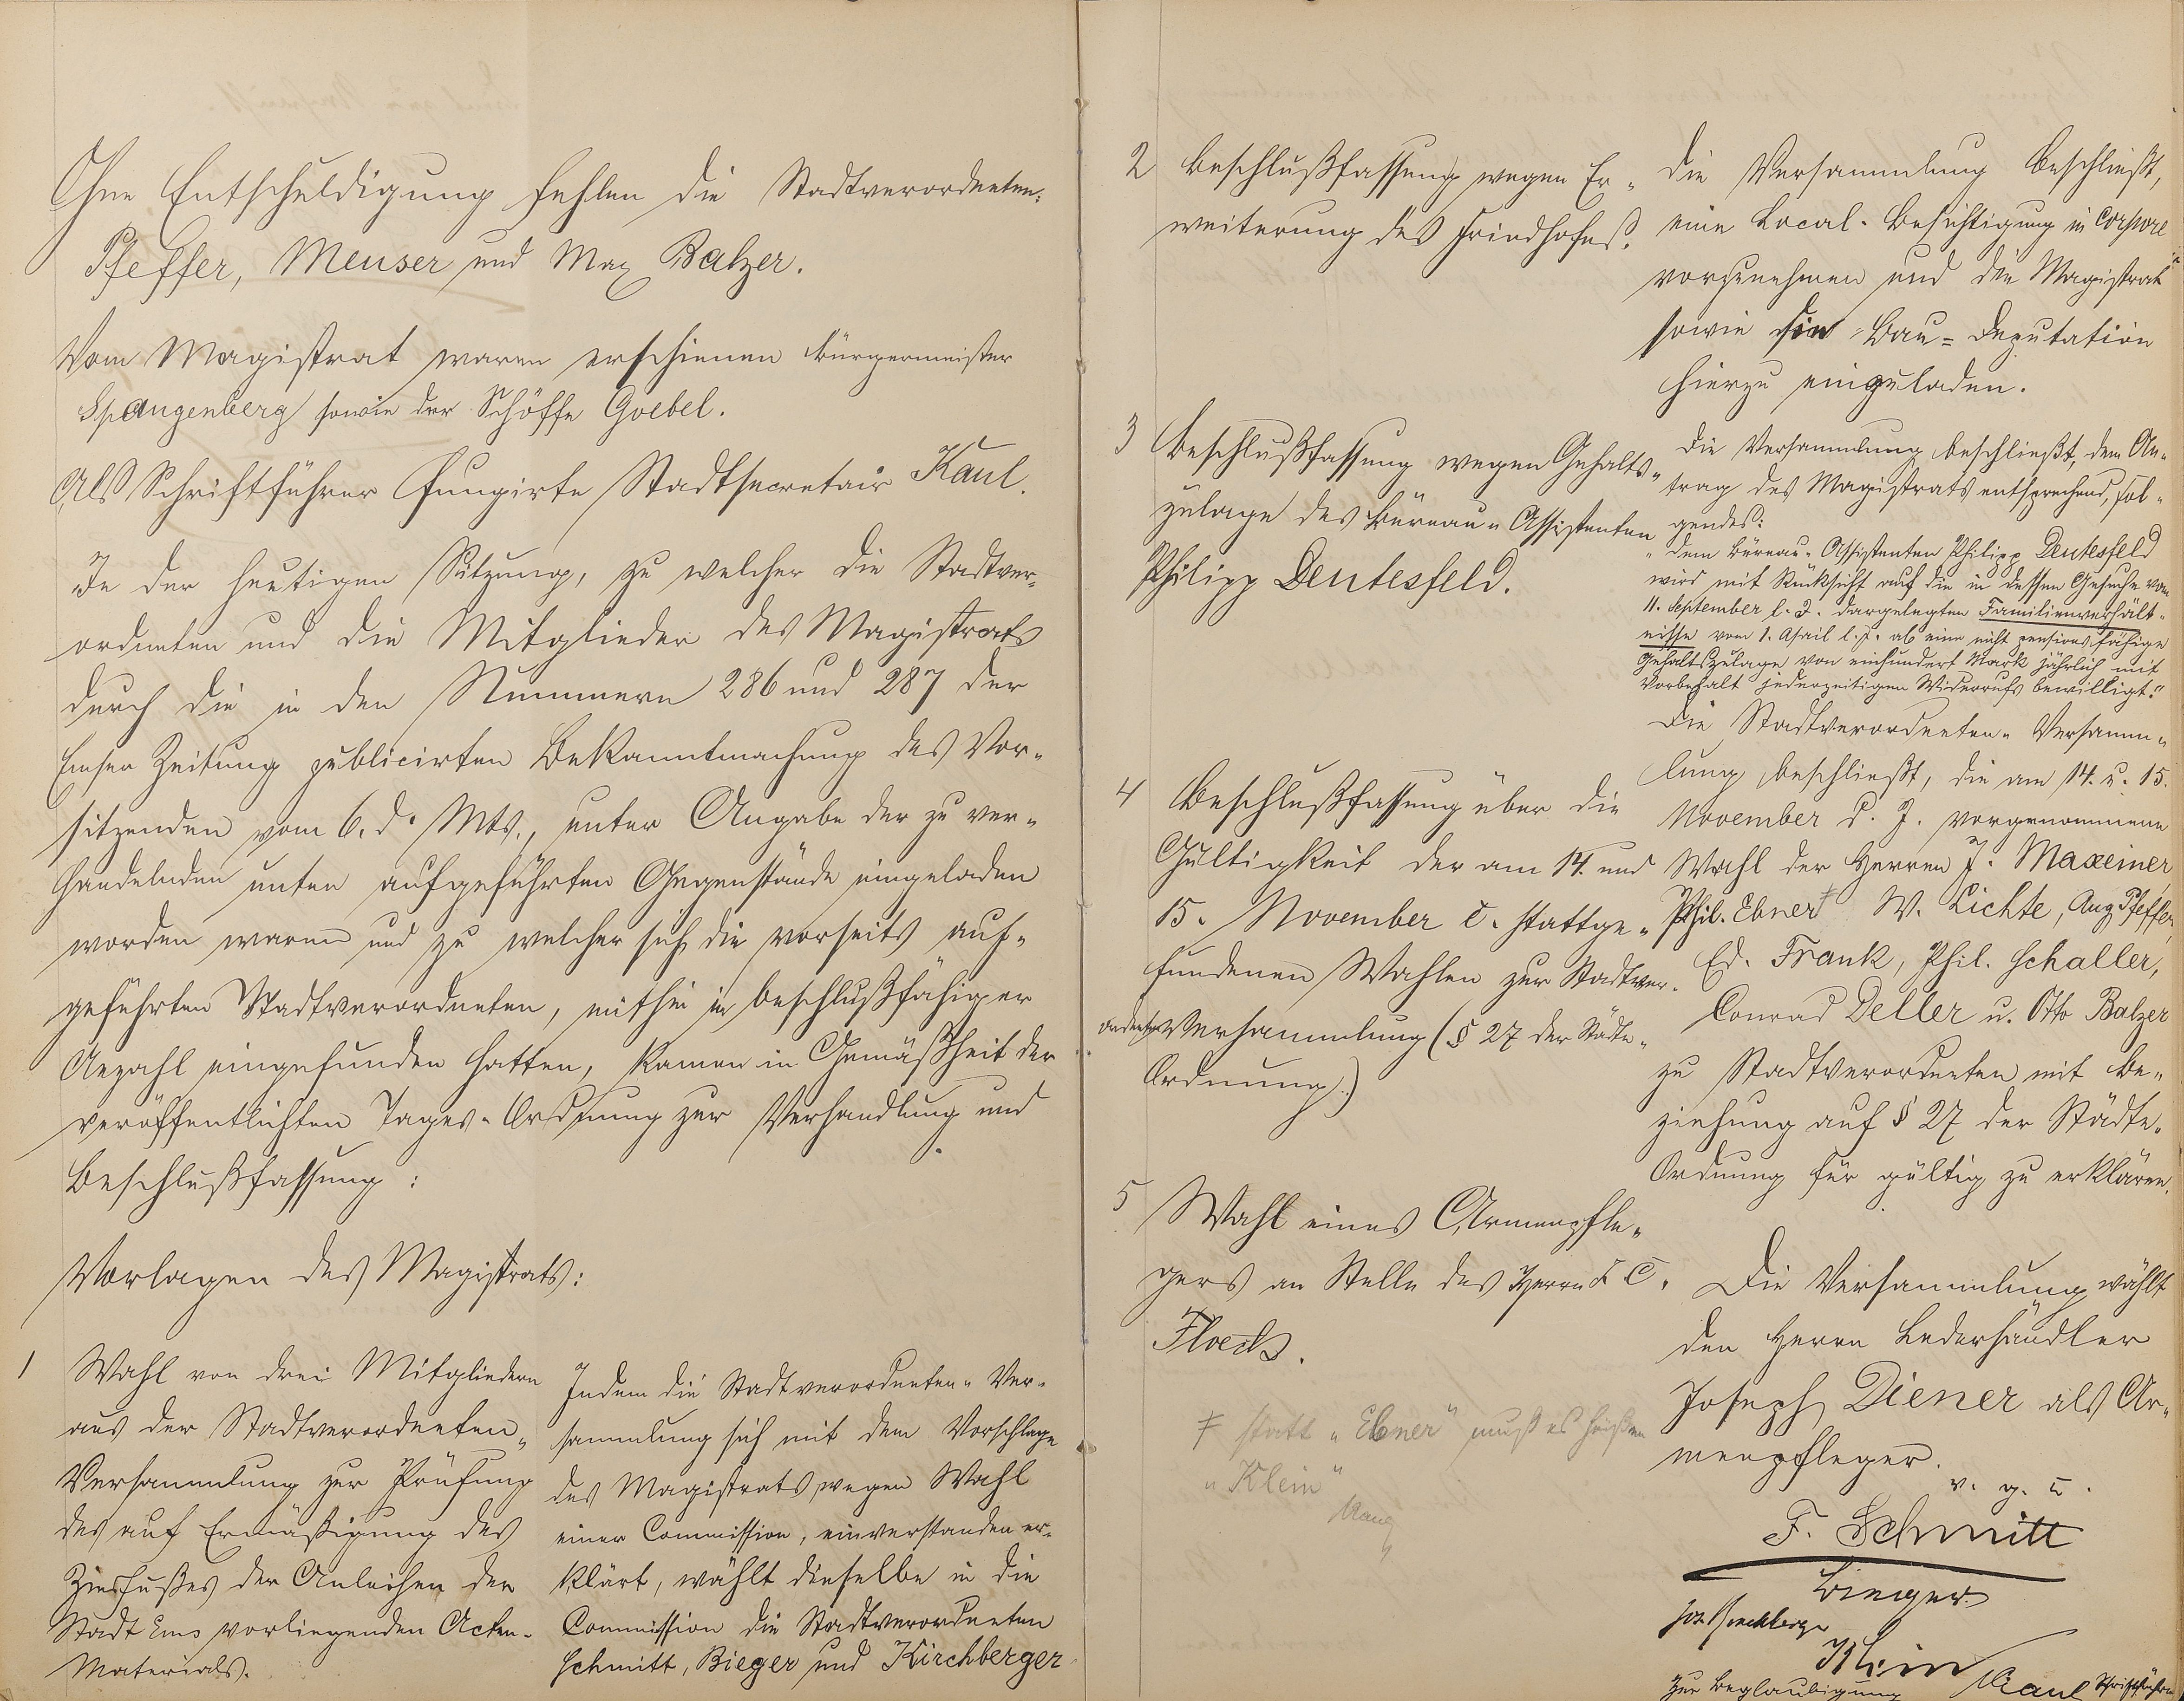 Ohne Entschuldigung fehlen die Stadtverordneten:
Pfeffer, Meuser und Max Balzer.
Vom Magistrat waren erschienen Bürgermeister
Spangenberg sowie der Schöffe Goebel.
Als Schriftführer fungirte Stadtsecretair Kaul.
In der heutigen Sitzung, zu welcher die Stadtver-
ordneten und die Mitglieder des Magistrats
durch die in den Nummern 286 und 287 der
Emser Zeitung publicirten Bekanntmachung des Vor-
sitzenden vom 6. d. Mts., unter Angabe der zu ver-
handelnden unten aufgeführten Gegenstände eingeladen
worden waren und zu welcher sich die vorseits auf-
geführten Stadtverordneten, mithin in beschlußfähiger
Anzahl eingefunden hatten, kamen in Gemäßheit der
veröffentlichten Tages-Ordnung zur Verhandlung und
Beschlußfassung:
Vorlagen des Magistrats:
1 Wahl von drei Mitgliedern
aus der Stadtverordneten-
Versammlung zur Prüfung
des auf Ermäßigung des
Zinsfußes der Anleihen der
Stadt Ems vorliegenden Acten-
Materials.
Indem die Stadtverordneten-Ver-
sammlung sich mit dem Vorschlage
des Magistrats wegen Wahl
einer Commission, einverstanden er-
klärt, wählt dieselbe in die
Commission die Stadtverordneten
Schmitt, Bieger und Kirchberger
2 Beschlußfassung wegen Er-
weiterung des Friedhofes.
Die Versammlung beschließt,
eine Local-Besichtigung in corpore
vorzunehmen und den Magistrat
sowie die Bau-Deputation
hierzu einzuladen.
3 Beschlußfassung wegen Gehalts-
zulage des Büreau-Assistenten
Philipp Deutesfeld.
Die Versammlung beschließt, dem An-
trag des Magistrats entsprechend, fol-
gendes:
"Dem Büreau-Assistenten Philipp Deutesfeld
wird mit Rücksicht auf die in dessen Gesuche vom
11. September l. J. dargelegten Familienverhält-
nisse vom 1. April l. J. ab eine nicht pensionsfähige
Gehaltszulage von einhundert Mark jährlich mit
Vorbehalt jederzeitigen Widerrufs bewilligt."
4 Beschlußfassung über die
Gültigkeit der am 14. und
15. November c. stattge-
fundenen Wahlen zur Stadtver-
ordneten Versammlung (§ 27 der Städte-
Ordnung.)
Die Stadtverordneten-Versamm-
lung beschließt, die am 14. u. 15.
November d. J. vorgenommene
Wahl der Herren J. Maxeiner,
Phil. Ebner ǂ W. Lichte, Aug Pfeffer,
Ed. Frank, Phil. Schaller,
Conrad Deller u. Otto Balzer
zu Stadtverordneten mit Be-
ziehung auf § 27 der Städte-
Ordnung für gültig zu erklären.
5 Wahl eines Armenpfle-
gers an Stelle des Herrn F. C.
Floeck.
Die Versammlung wählt
den Herrn Lederhändler
Joseph Diener als Ar-
menpfleger.
ǂ statt "Ebner" muß es heißen
"Klein"
Kaul
v. g. u.
F. Schmitt
Bieger
Jos Kirchberger
Klein
Zur Beglaubigung Kaul Schriftführer